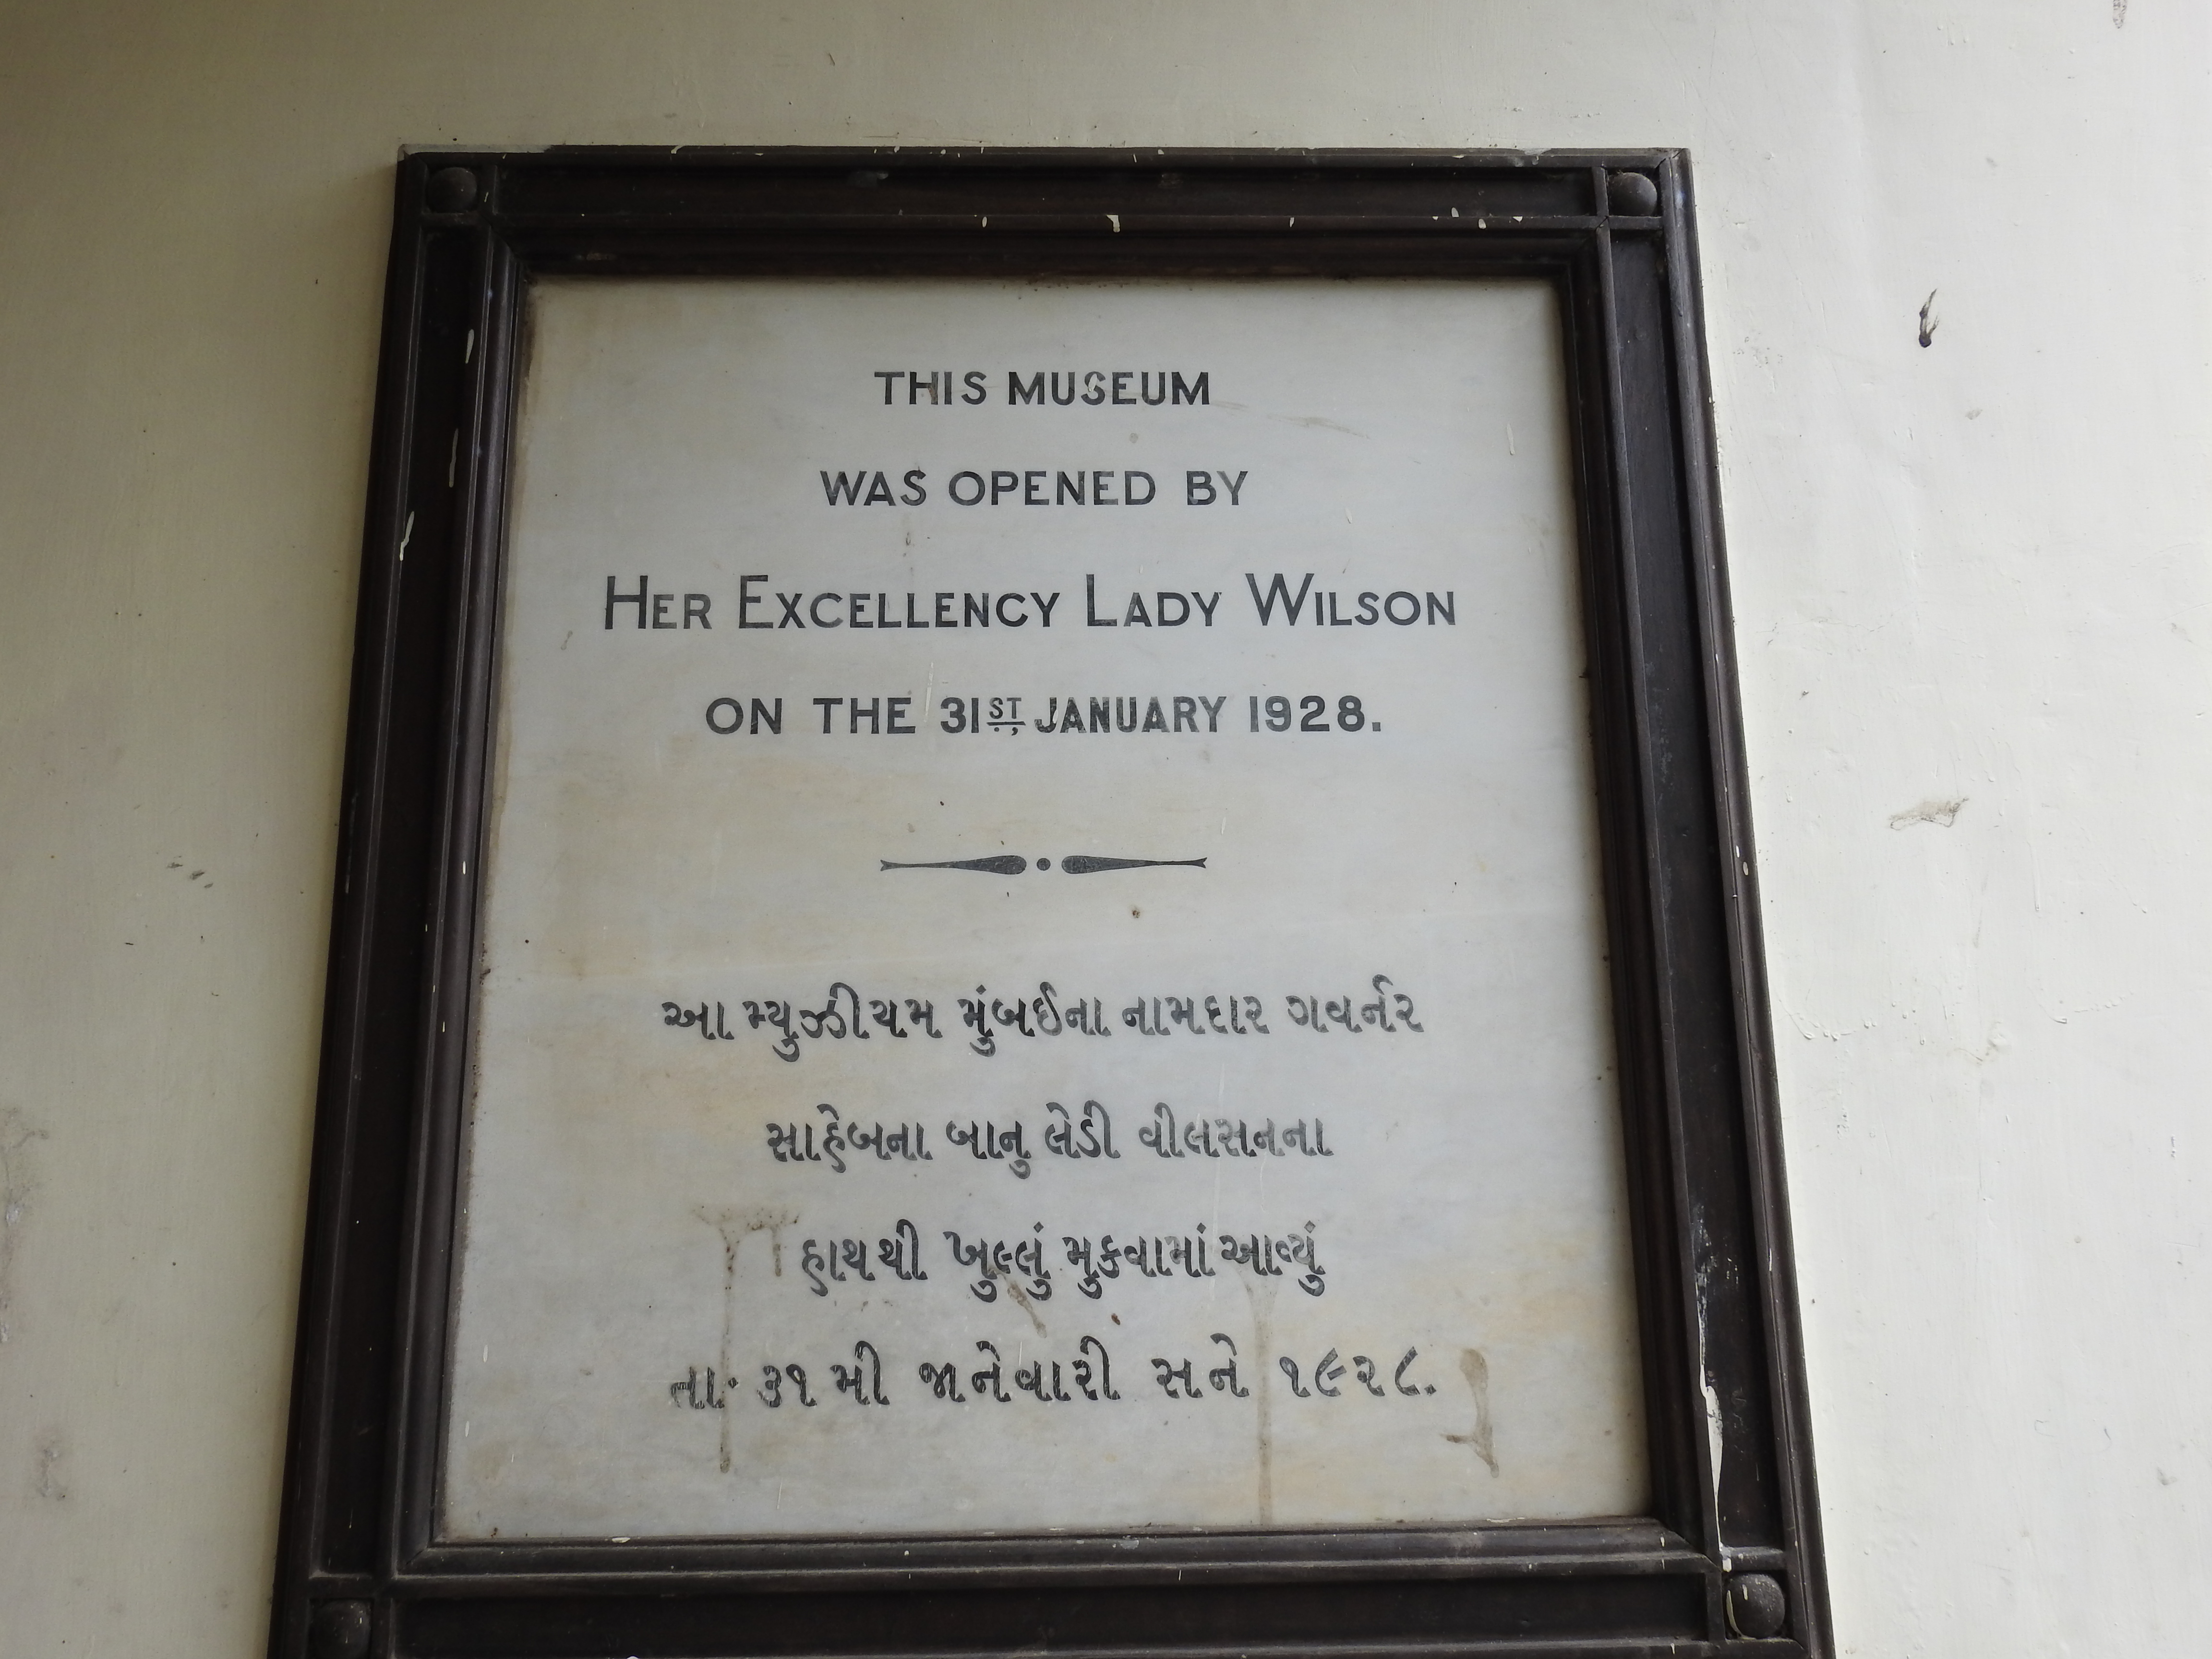 THIS MUSEUM
WAS OPENED BY
HER EXCELLENCY LADY WILSON
ON THE 31ST, JANUARY 1928.
આ મ્યુઝીયમ મુંબઈના નામદાર ગવર્નર
સાહેબના બાનુ લેડી વીલસનના
હાથથી ખુલ્લું મુકવામાં આવ્યું
તા. ૩૧ મી જાનેવારી સને ૧૯૨૮.